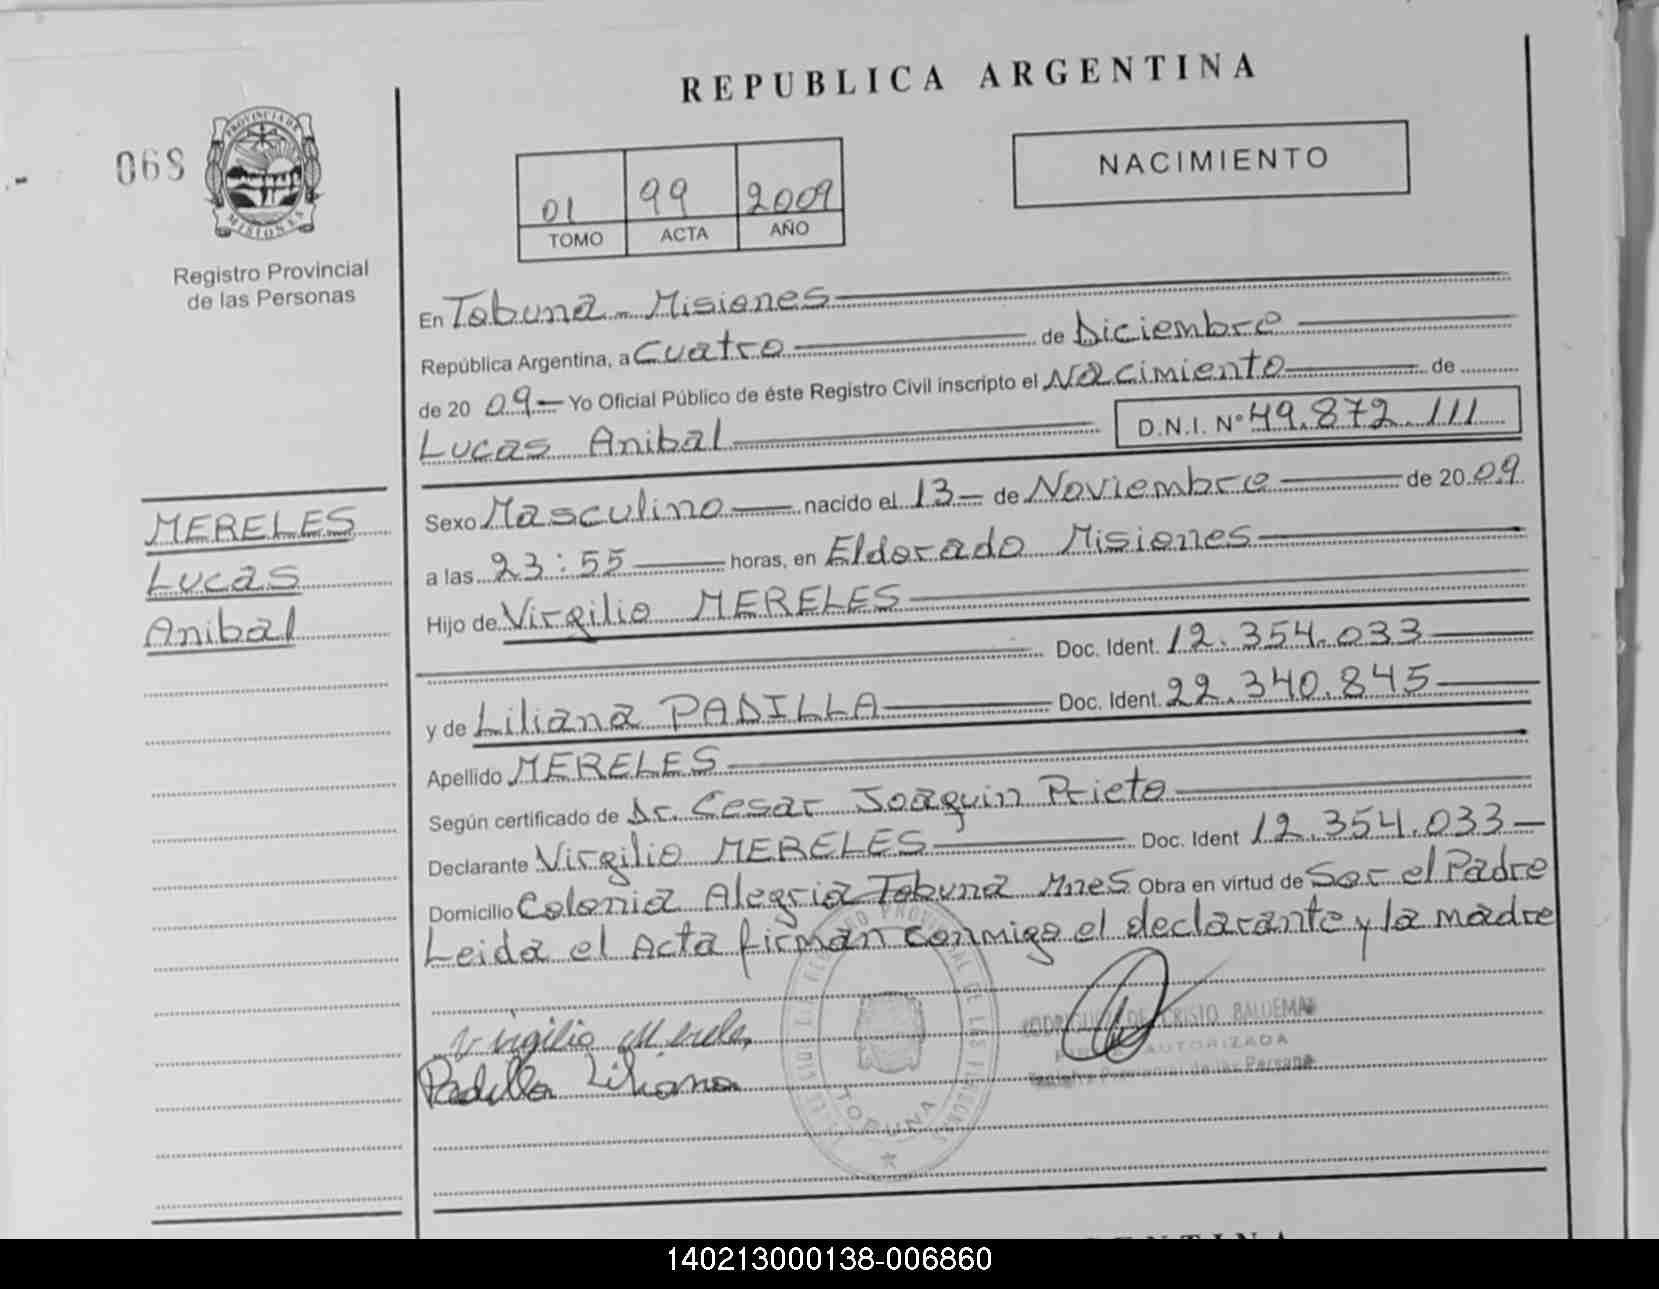 REPUBLICA ARGENTINA
068
PROVINCIA DE
MISIONES
Registro Provincial
de las Personas
01 99 2009
TOMO ACTA AÑO
NACIMIENTO
En Tobuna - Misiones
República Argentina, a Cuatro de Diciembre
de 20 09 Yo Oficial Público de éste Registro Civil inscripto el Nacimiento de
Lucas Anibal D.N.I. Nº 49.872.111
MERELES
Lucas
Anibal
Sexo Masculino nacido el 13 de Noviembre de 20 09
a las 23:55 horas, en Eldorado Misiones
Hijo de Virgilio MERELES
Doc. Ident. 12.354.033
y de Liliana PADILLA Doc. Ident. 22.340.845
Apellido MERELES
Según certificado de Dr. Cesar Joaquin Prieto
Declarante Virgilio MERELES Doc. Ident 12.354.033
Domicilio Colonia Alegria Tobuna Mnes Obra en virtud de Ser el Padre
Leida el Acta firman conmigo el declarante y la madre
Virgilio Mereles
Padilla Liliana
TOBUNA
AUTORIZADA
140213000138-006860